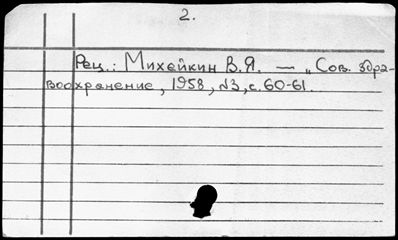 2.
Рец.: Михейкин В.Я. — „Сов. здра-
воохранение, 1958, №3, с. 60-61.